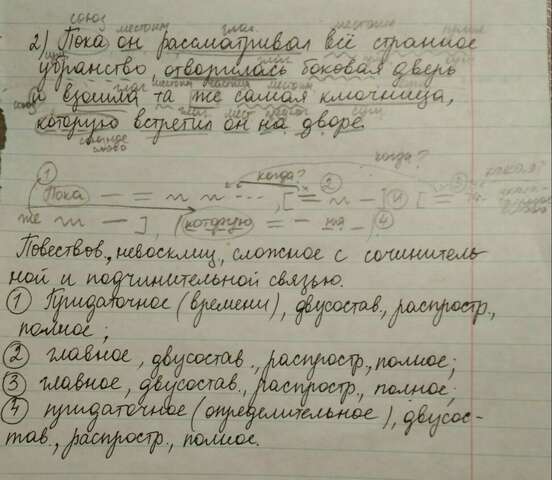 союз местоим. глаг. местоим. прилаг.
2) Пока он рассматривал всё странное
сущ. глаг. прил. сущ.
убранство, отворилась боковая дверь
глаг. местоим. частица местоим. сущ.
и взошла та же самая ключница,
глаг. мест. предлог сущ.
которую встретил он на дворе.
союзное слово
когда?
1 когда? 2 3 какая?
(Пока — = ... , [= — ] и [=
же — ], (которую = — на ) 4
Повествов., невосклиц., сложное с сочинитель-
ной и подчинительной связью.
1 Придаточное (времени), двусостав., распростр.,
полное;
2 главное, двусостав., распростр., полное;
3 главное, двусостав., распростр., полное;
4 придаточное (определительное), двусос-
тав., распростр., полное.